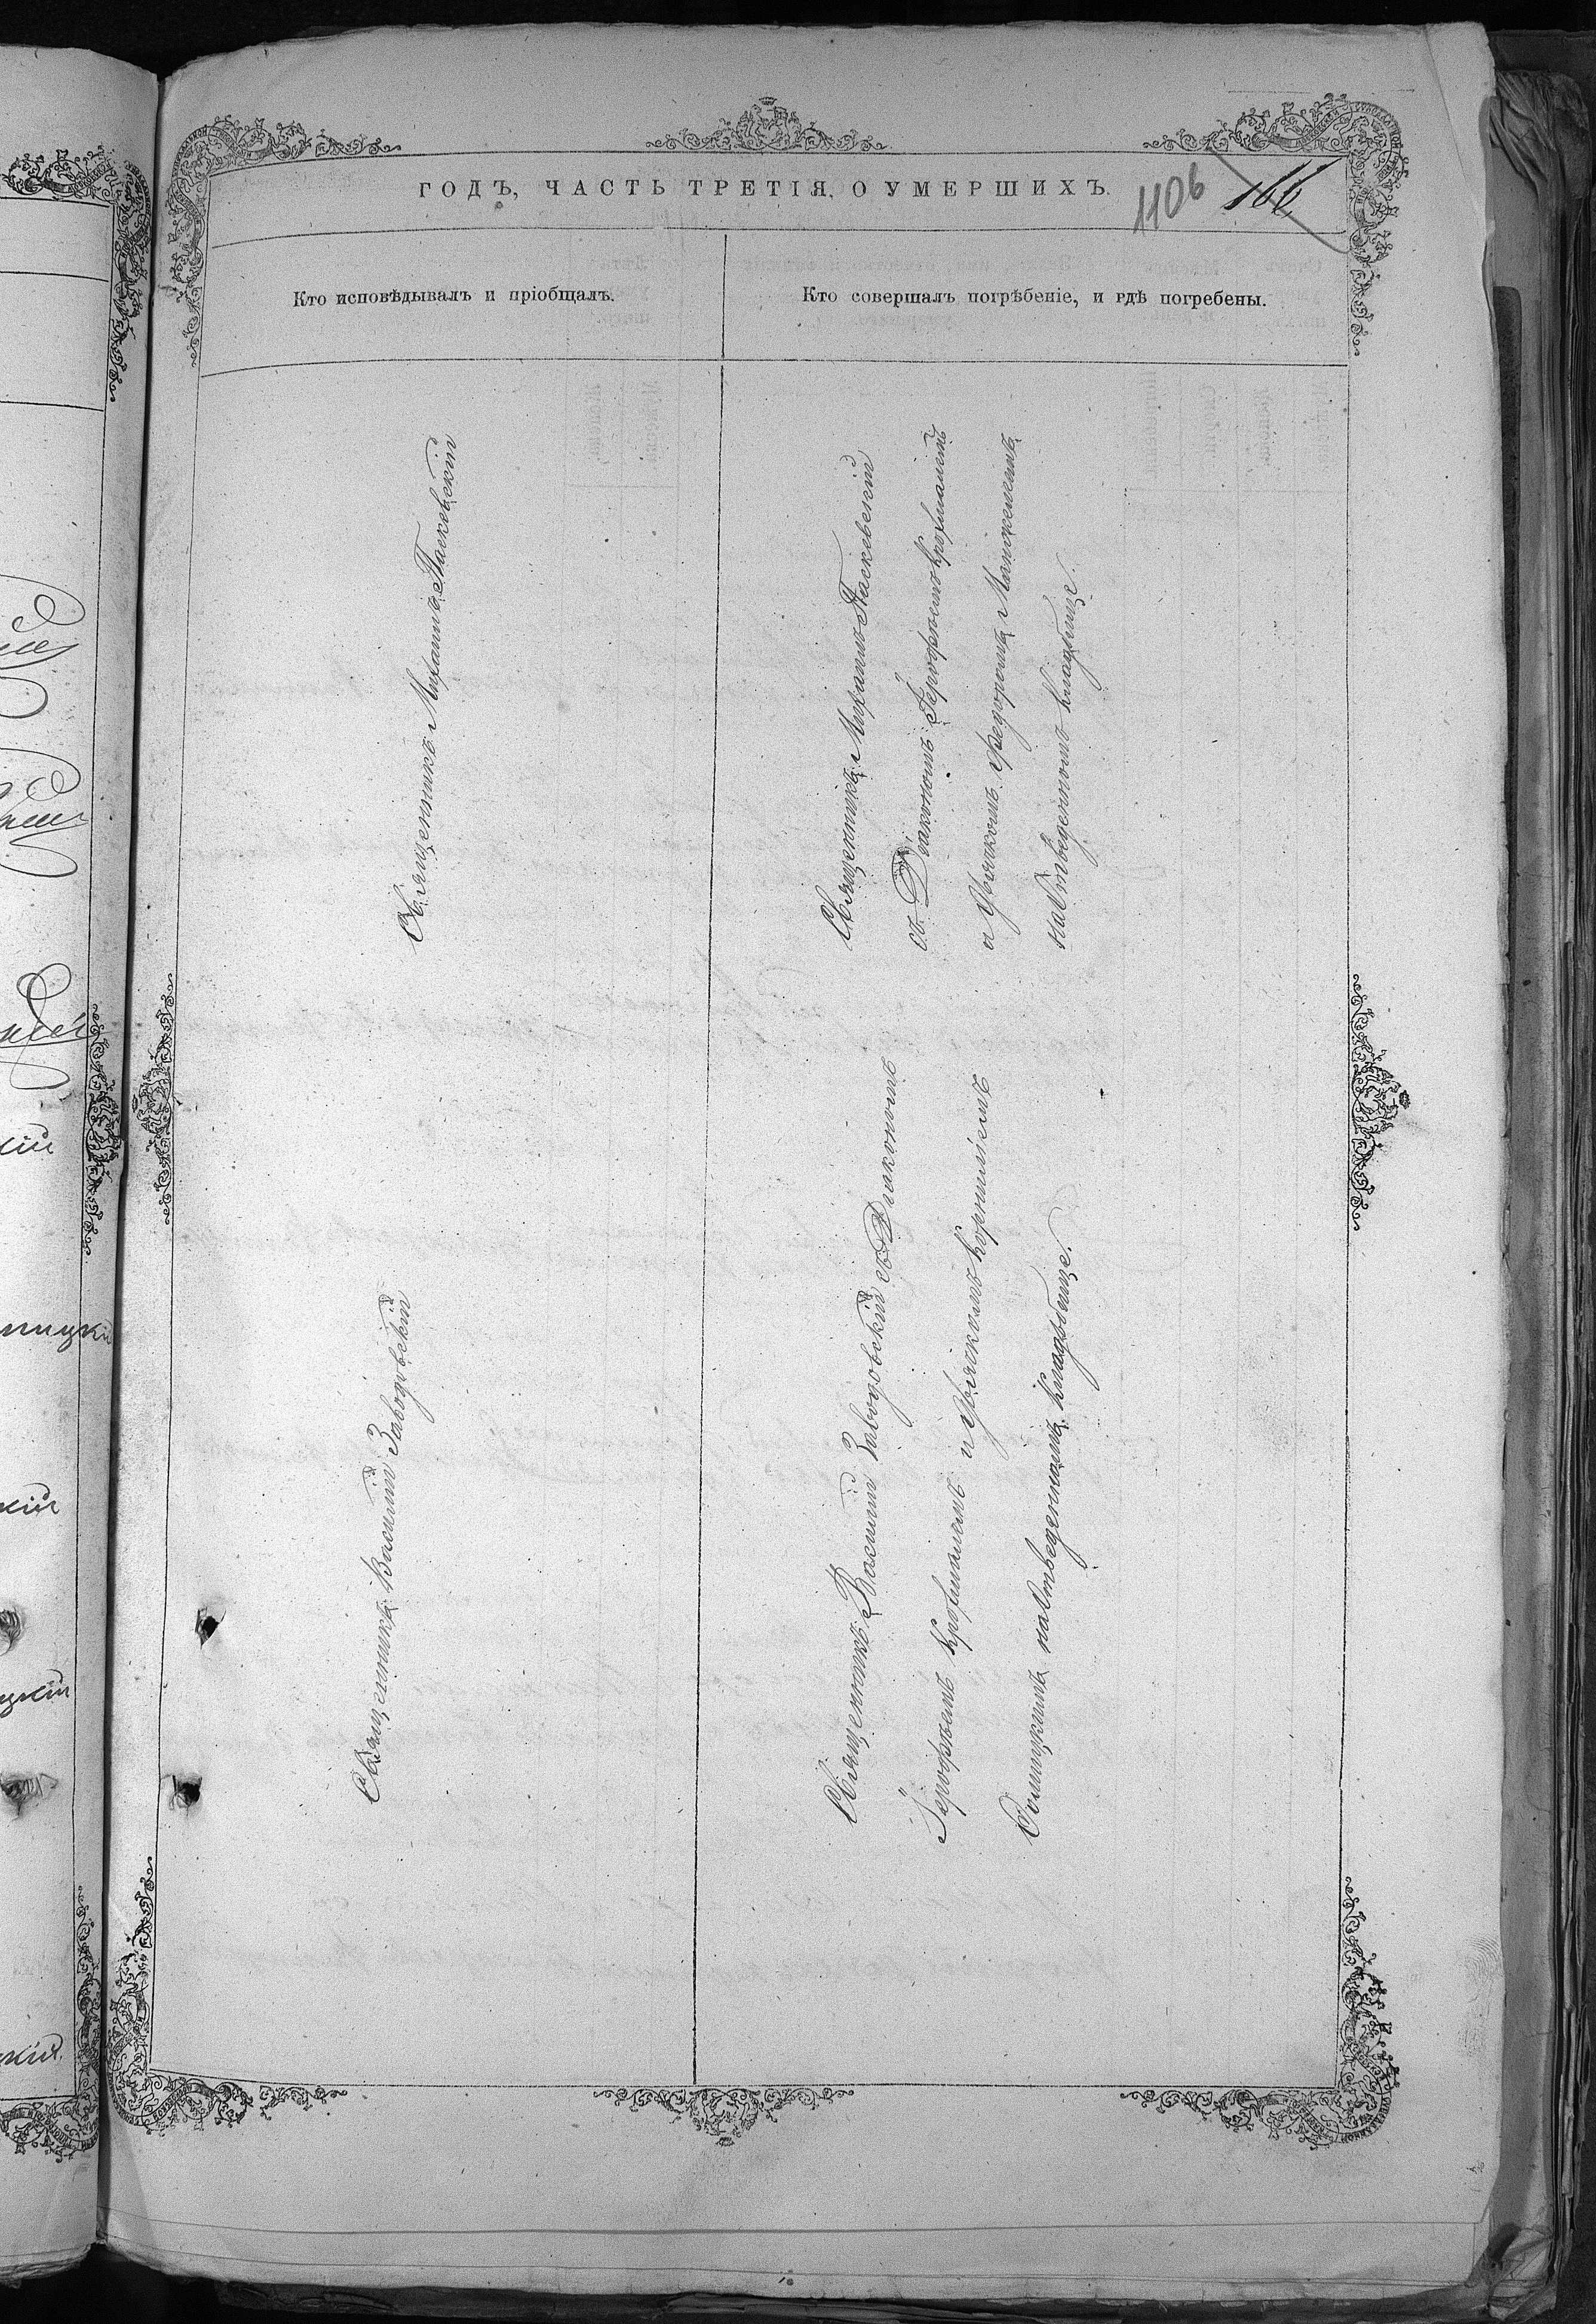 ГОДЪ, ЧАСТЬ ТРЕТІЯ, О УМЕРШИХЪ.
1106
166
Кто исповѣдывалъ и пріобщалъ.
Кто совершалъ погрѣбеніе, и гдѣ погребены.
Священникъ Михаилъ Паскевскій
Священникъ Михаилъ Паскевскій
съ Діакономъ Іерофѣемъ Крохмалемъ
и Ѳедоромъ
на Отведенномъ кладбище.
Священникъ Василій Заводовскій
Священникъ Василій Заводовскій съ Діакономъ
Іерофѣемъ Крохмалемъ и Корниліемъ
на Отведенномъ Кладбище.